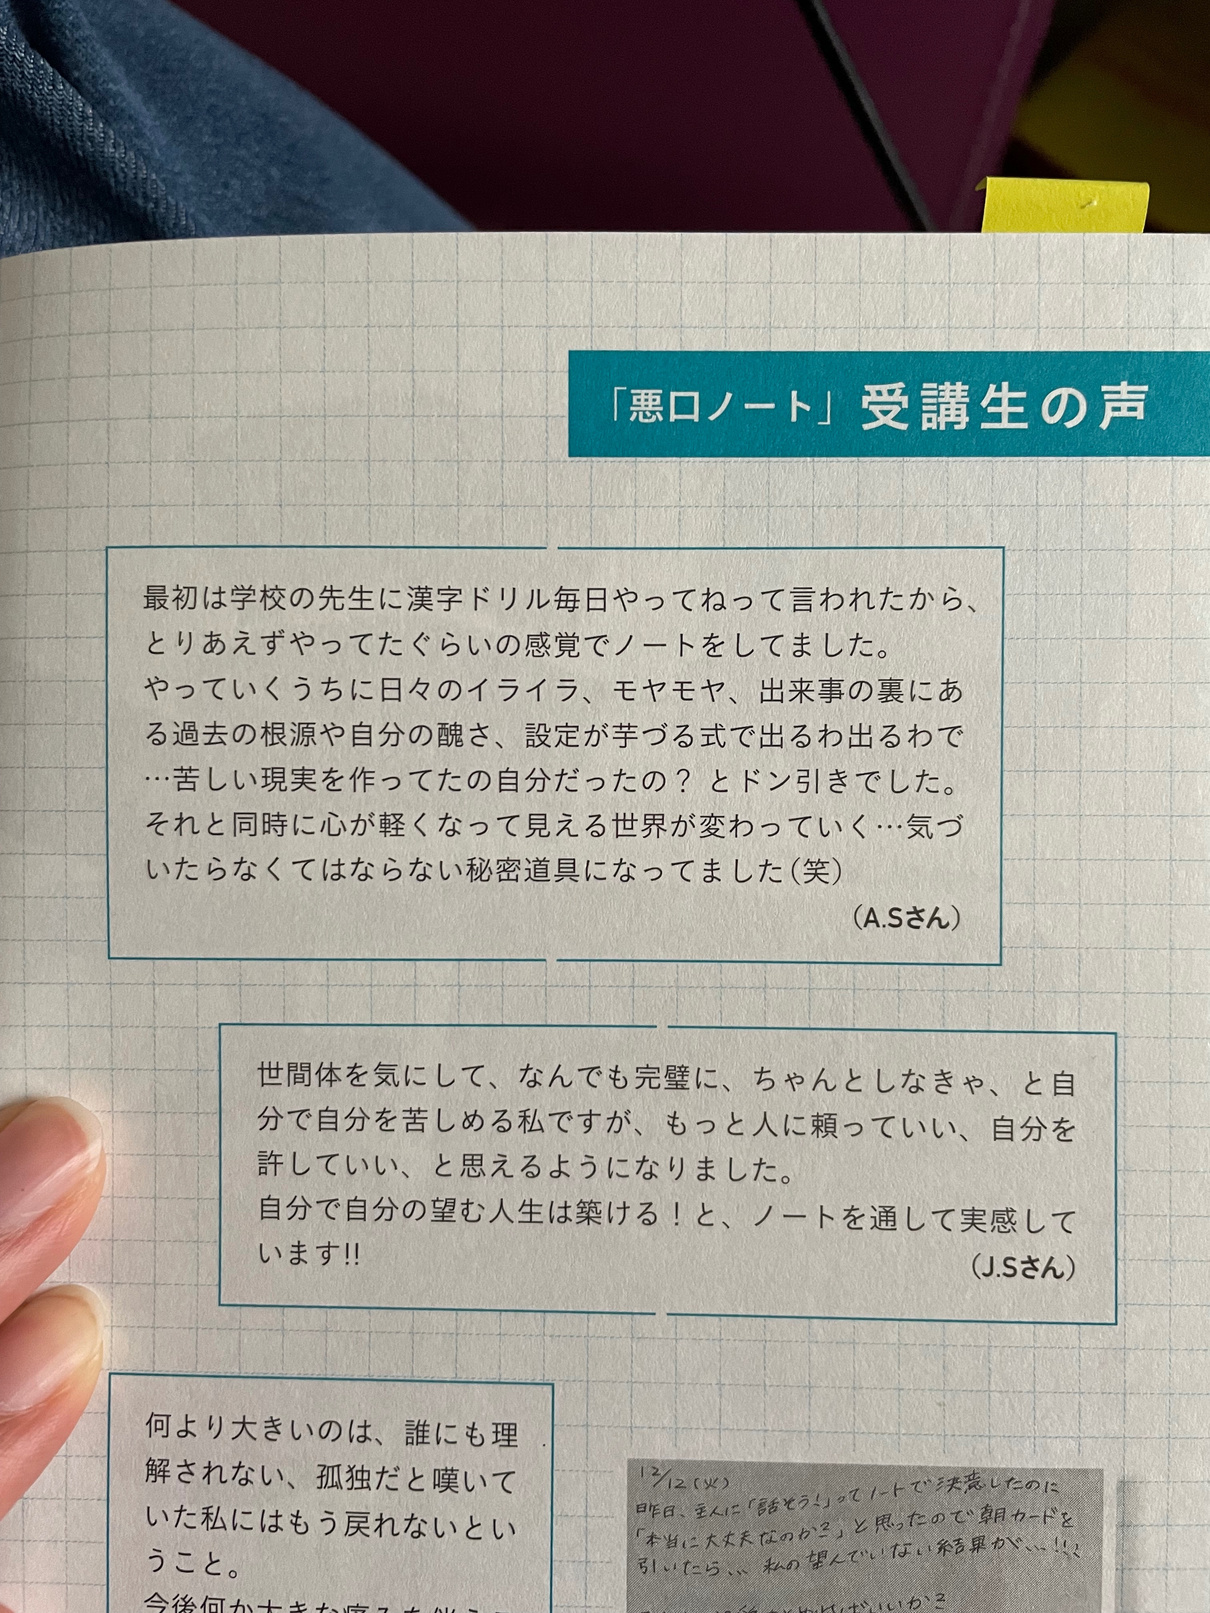 「悪口ノート」受講生の声
最初は学校の先生に漢字ドリル毎日やってねって言われたから、
とりあえずやってたぐらいの感覚でノートをしてました。
やっていくうちに日々のイライラ、モヤモヤ、出来事の裏にあ
る過去の根源や自分の醜さ、設定が芋づる式で出るわ出るわで
…苦しい現実を作ってたの自分だったの？ とドン引きでした。
それと同時に心が軽くなって見える世界が変わっていく…気づ
いたらなくてはならない秘密道具になってました(笑)
（A.Sさん）
世間体を気にして、なんでも完璧に、ちゃんとしなきゃ、と自
分で自分を苦しめる私ですが、もっと人に頼っていい、自分を
許していい、と思えるようになりました。
自分で自分の望む人生は築ける！と、ノートを通して実感して
います!!
（J.Sさん）
何より大きいのは、誰にも理
解されない、孤独だと嘆いて
いた私にはもう戻れないとい
うこと。
今後何か大きな痛みを伴う
12/12(火)
昨日、主人に「話そう!」ってノートで決意したのに
「本当に大丈夫なのか?」と思ったので朝カードを
引いたら… 私の望んでいない結果が…!!